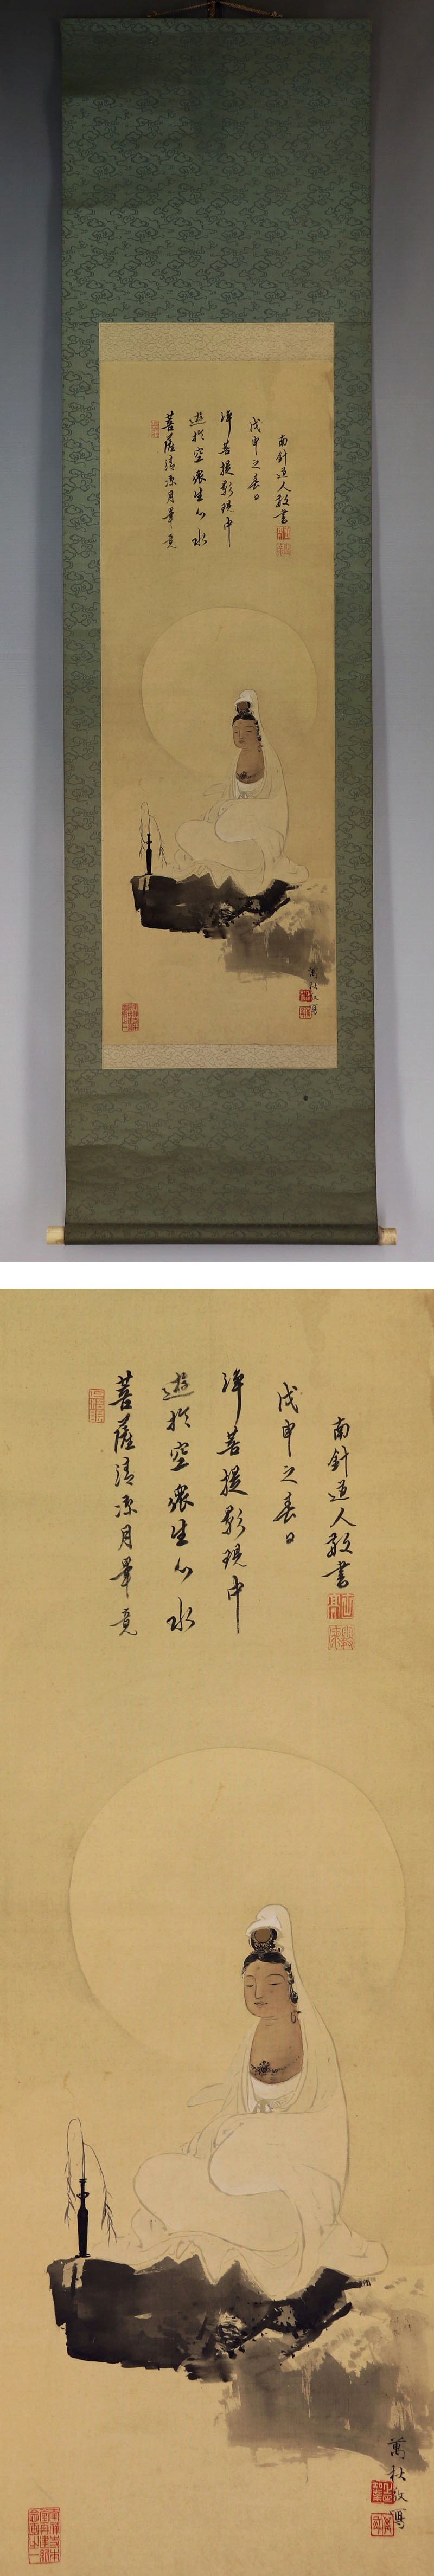 菩薩清涼月畢竟
遊於空衆生心水
浄菩提影現中
戊申之春日
南針道人敬書
萬秋敬寫
菩薩清涼月畢竟
遊於空衆生心水
浄菩提影現中
戊申之春日
南針道人敬書
萬秋敬寫